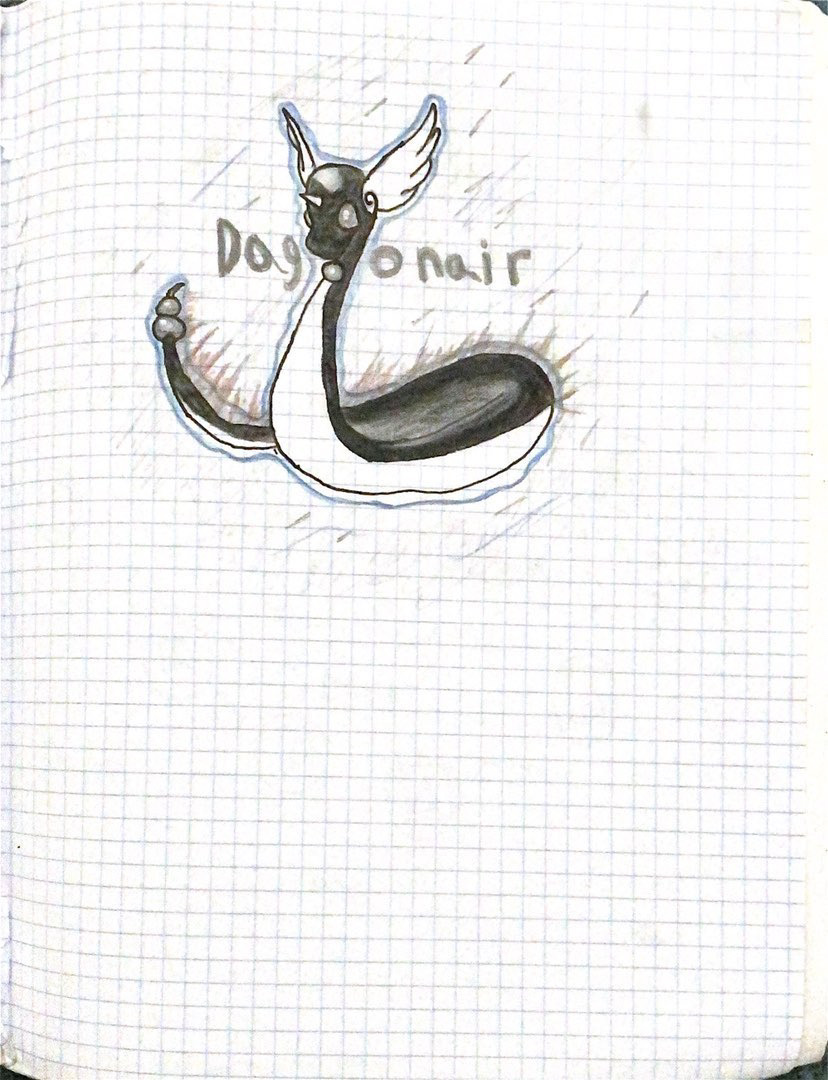 Dog onair